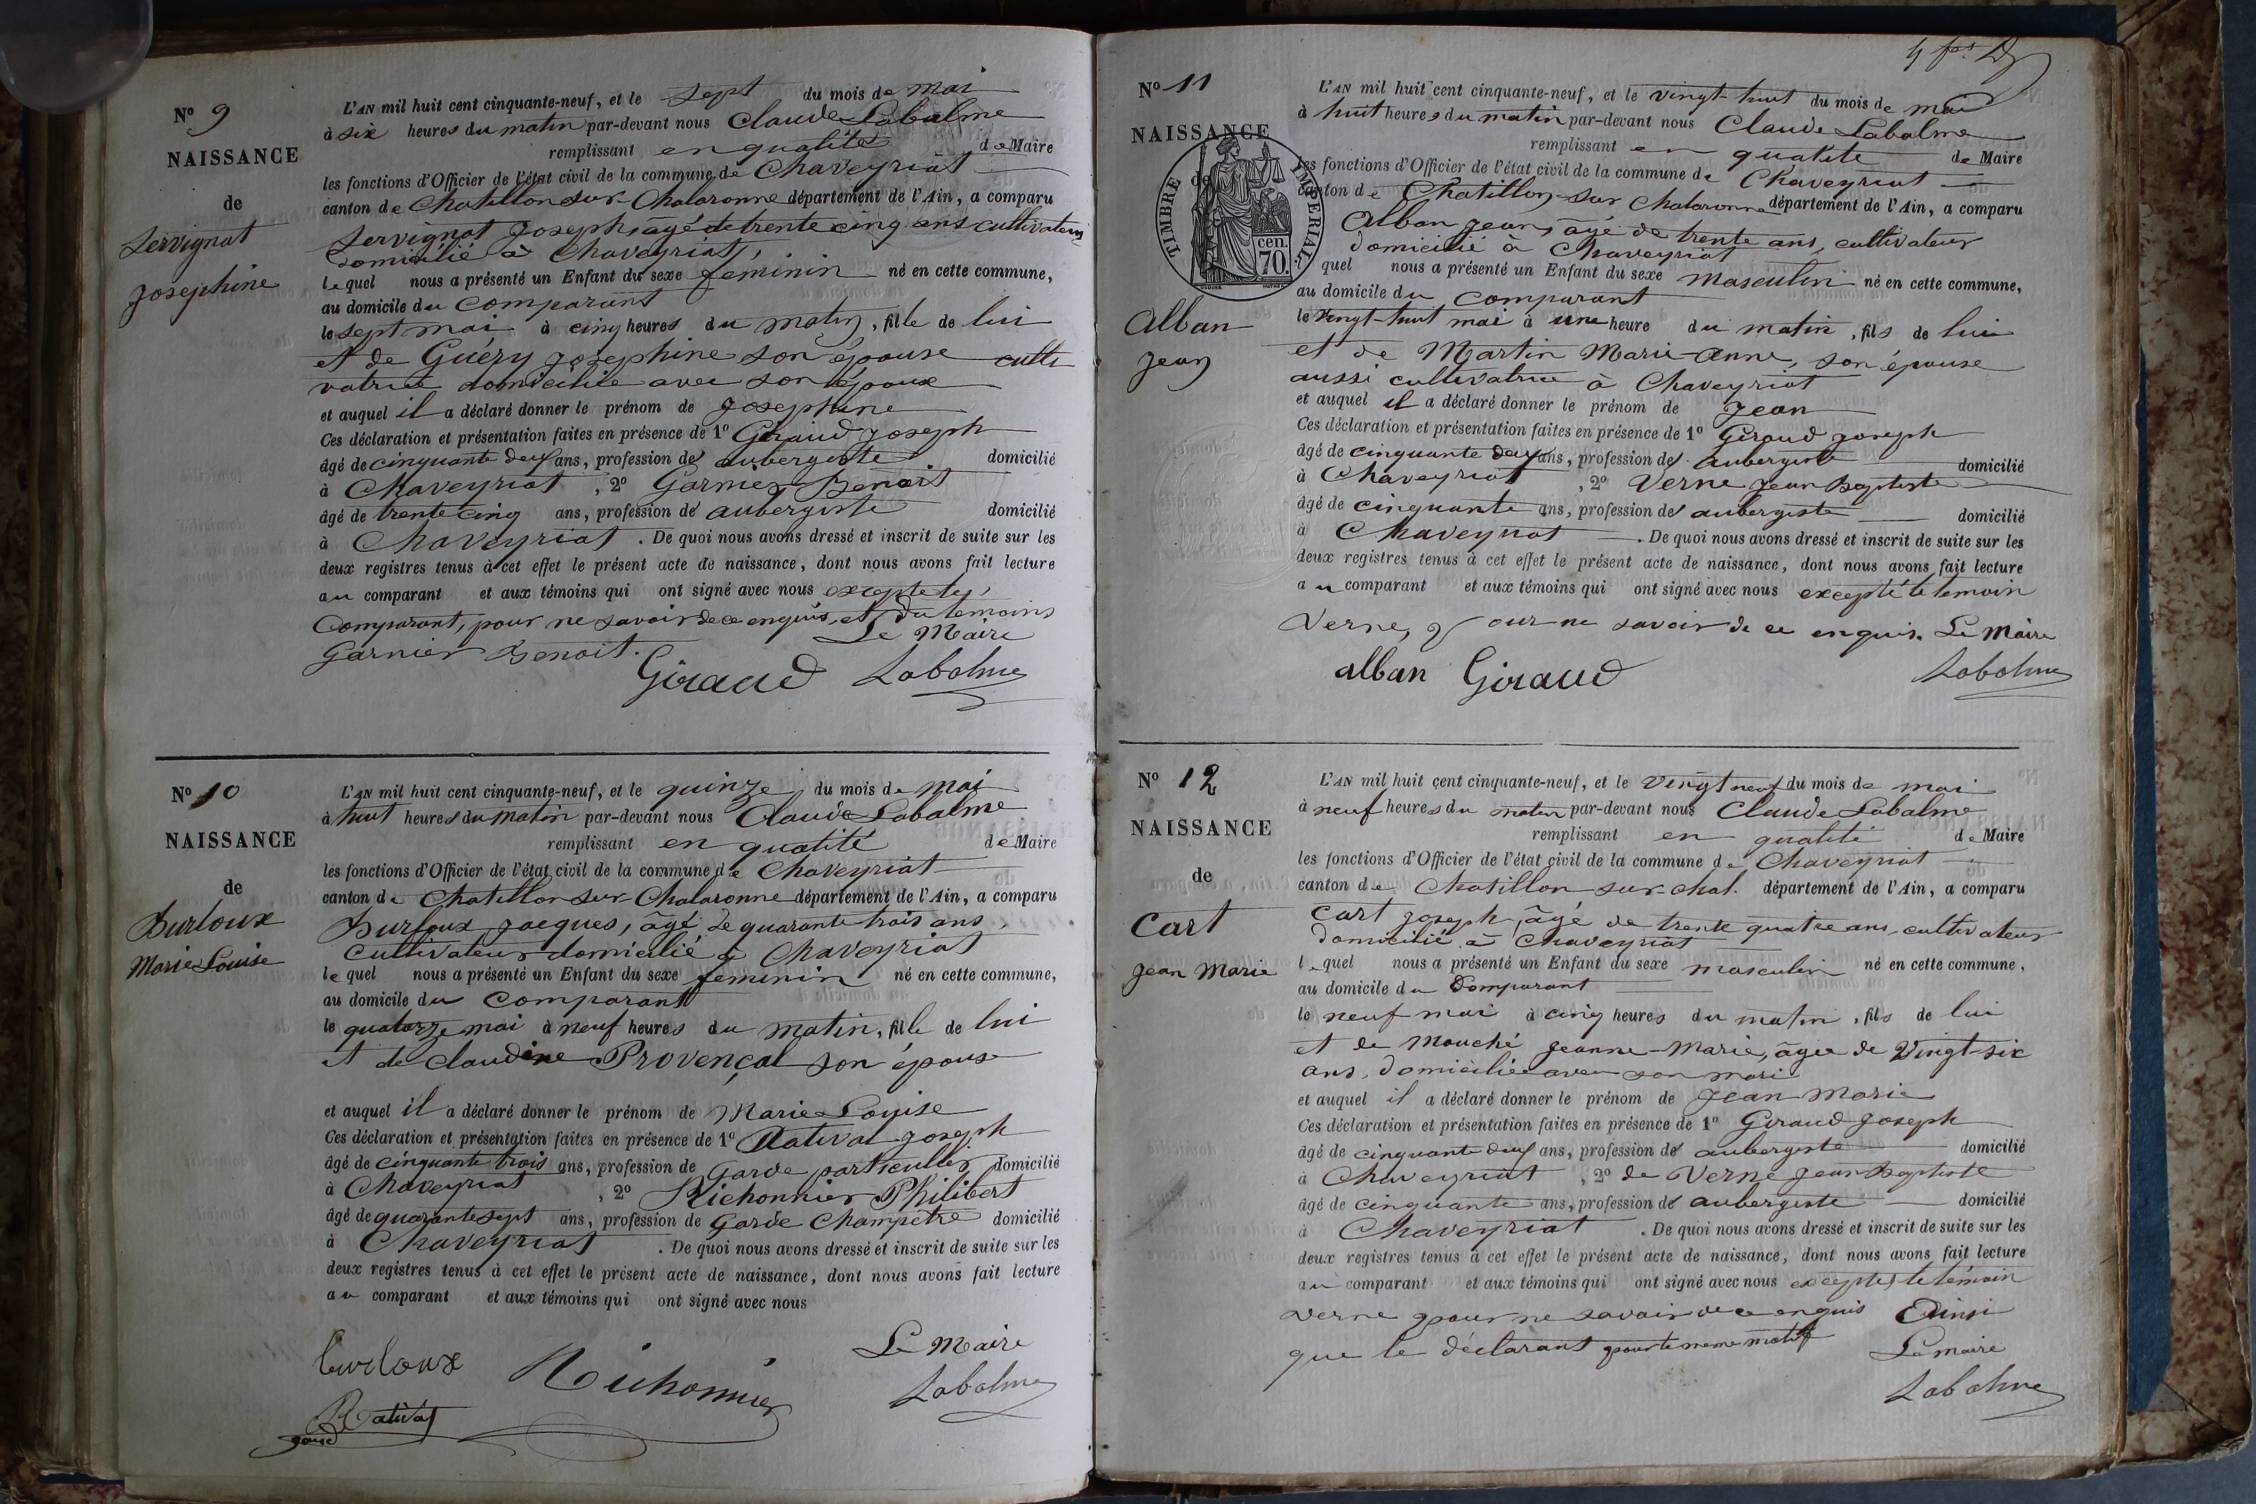 N° 9
NAISSANCE
de
Servignat
Josephine
L'AN mil huit cent cinquante-neuf, et le sept du mois de mai
à six heures du matin par-devant nous Claude Labalme
remplissant en qualité de Maire
les fonctions d'Officier de l'état civil de la commune de Chaveyriat
canton de Chatillon sur Chalaronne département de l'Ain, a comparu
Servignat Joseph, âgé de trente cinq ans cultivateur
domicilié à Chaveyriat,
lequel nous a présenté un Enfant du sexe feminin né en cette commune,
au domicile du comparant
le sept mai à cinq heures du matin, fille de lui
et de Guéry Josephine son épouse culti
vatrice domiciliée avec son époux
et auquel il a déclaré donner le prénom de Josephine
Ces déclaration et présentation faites en présence de 1° Giraud Joseph
âgé de cinquante deux ans, profession de aubergiste domicilié
à Chaveyriat, 2° Garnier Benoit
âgé de trente cinq ans, profession de aubergiste domicilié
à Chaveyriat. De quoi nous avons dressé et inscrit de suite sur les
deux registres tenus à cet effet le présent acte de naissance, dont nous avons fait lecture
au comparant et aux témoins qui ont signé avec nous excepté le
Comparant, pour ne savoir de ce enquis, et du temoins
Garnier Benoit. Le Maire
Giraud Labalme
N° 10
NAISSANCE
de
Burloux
Marie Louise
L'AN mil huit cent cinquante-neuf, et le quinze du mois de mai
à huit heures du matin par-devant nous Claude Labalme
remplissant en qualité de Maire
les fonctions d'Officier de l'état civil de la commune de Chaveyriat
canton de Chatillon sur Chalaronne département de l'Ain, a comparu
Burloux Jacques, âgé de quarante trois ans,
cultivateur domicilié à Chaveyriat
lequel nous a présenté un Enfant du sexe feminin né en cette commune,
au domicile du comparant
le quatorze mai à neuf heures du matin, fille de lui
et de Claudine Provençal son épouse
et auquel il a déclaré donner le prénom de Marie Louise
Ces déclaration et présentation faites en présence de 1° Rativat Joseph
âgé de cinquante trois ans, profession de garde particullier domicilié
à Chaveyriat, 2° Richonnier Philibert
âgé de quarante sept ans, profession de Garde Champetre domicilié
à Chaveyriat. De quoi nous avons dressé et inscrit de suite sur les
deux registres tenus à cet effet le présent acte de naissance, dont nous avons fait lecture
au comparant et aux témoins qui ont signé avec nous
Le Maire
burloux Richonnier Labalme
Rativat
garde
N° 11
NAISSANCE
de
TIMBRE IMPERIAL
cen.
70.
Alban
Jean
L'AN mil huit cent cinquante-neuf, et le vingt-huit du mois de mai
à huit heures du matin par-devant nous Claude Labalme
remplissant en qualité de Maire
les fonctions d'Officier de l'état civil de la commune de Chaveyriat
canton de Chatillon sur Chalaronne département de l'Ain, a comparu
Alban Jean, âgé de trente ans, cultivateur
domicilié à Chaveyriat
quel nous a présenté un Enfant du sexe masculin né en cette commune,
au domicile du comparant
le vingt-huit mai à une heure du matin, fils de lui
et de Martin Marie-Anne, son épouse
aussi cultivatrice à Chaveyriat
et auquel il a déclaré donner le prénom de Jean
Ces déclaration et présentation faites en présence de 1° Giraud Joseph
âgé de cinquante deux ans, profession de aubergiste domicilié
à Chaveyriat, 2° Verne Jean Baptiste
âgé de cinquante ans, profession de aubergiste domicilié
à Chaveyriat. De quoi nous avons dressé et inscrit de suite sur les
deux registres tenus à cet effet le présent acte de naissance, dont nous avons fait lecture
au comparant et aux témoins qui ont signé avec nous excepté le temoin
Verne, pour ne savoir de ce enquis. Le Maire
alban Giraud Labalme
N° 12
NAISSANCE
de
Cart
Jean Marie
L'AN mil huit cent cinquante-neuf, et le vingt neuf du mois de mai
à neuf heures du matin par-devant nous Claude Labalme
remplissant en qualité de Maire
les fonctions d'Officier de l'état civil de la commune de Chaveyriat
canton de Chatillon sur chal. département de l'Ain, a comparu
Cart Joseph, âgé de trente quatre ans, cultivateur
domicilié à Chaveyriat
lequel nous a présenté un Enfant du sexe masculin né en cette commune,
au domicile du Comparant
le neuf mai à cinq heures du matin, fils de lui
et de Mouché Jeanne-Marie, âgée de Vingt-six
ans, domiciliée avec son mari
et auquel il a déclaré donner le prénom de Jean Marie
Ces déclaration et présentation faites en présence de 1° Giraud Joseph
âgé de cinquante deux ans, profession de aubergiste domicilié
à Chaveyriat, 2° de Verne Jean Baptiste
âgé de cinquante ans, profession de aubergiste domicilié
à Chaveyriat. De quoi nous avons dressé et inscrit de suite sur les
deux registres tenus à cet effet le présent acte de naissance, dont nous avons fait lecture
au comparant et aux témoins qui ont signé avec nous excepté le témoin
Verne pour ne savoir de ce enquis Ainsi
que le déclarant pour le meme motif Le maire
Labalme